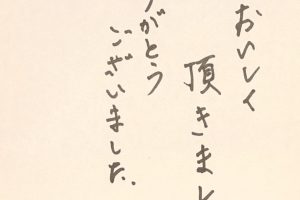 おいしく
頂きまし
りがとう
ございました.